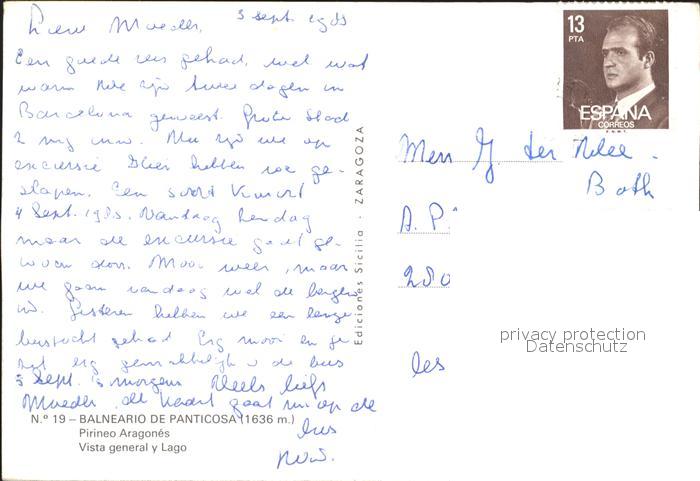 Lieve Moeder, 3 sept 1985
Een goede reis gehad, wel wat
warm. We zijn twee dagen in
Barcelona geweest. Grote stad
2 mj inw. Nu zijn we op
excursie Hier hebben we ge-
slapen. Een soort Kuuroord
4 Sept. 1985. Vandaag
maar de excursie gaat ge-
woon door. Mooi weer, maar
we gaan vandaag wel de bergen
in. Gisteren hebben we een lange
bustocht gehad Erg mooi en je
zat erg gemakkelijk in de bus
5 Sept. 's morgens liefs
Moeder, de kaart gaat nu op de
bus
13
PTA
ESPAÑA
CORREOS
F.N.M.T.
Mevr J. ter
A.P.
280
les
Ediciones Sicilia - ZARAGOZA
privacy protection
Datenschutz
N.º 19 – BALNEARIO DE PANTICOSA (1636 m.)
Pirineo Aragonés
Vista general y Lago